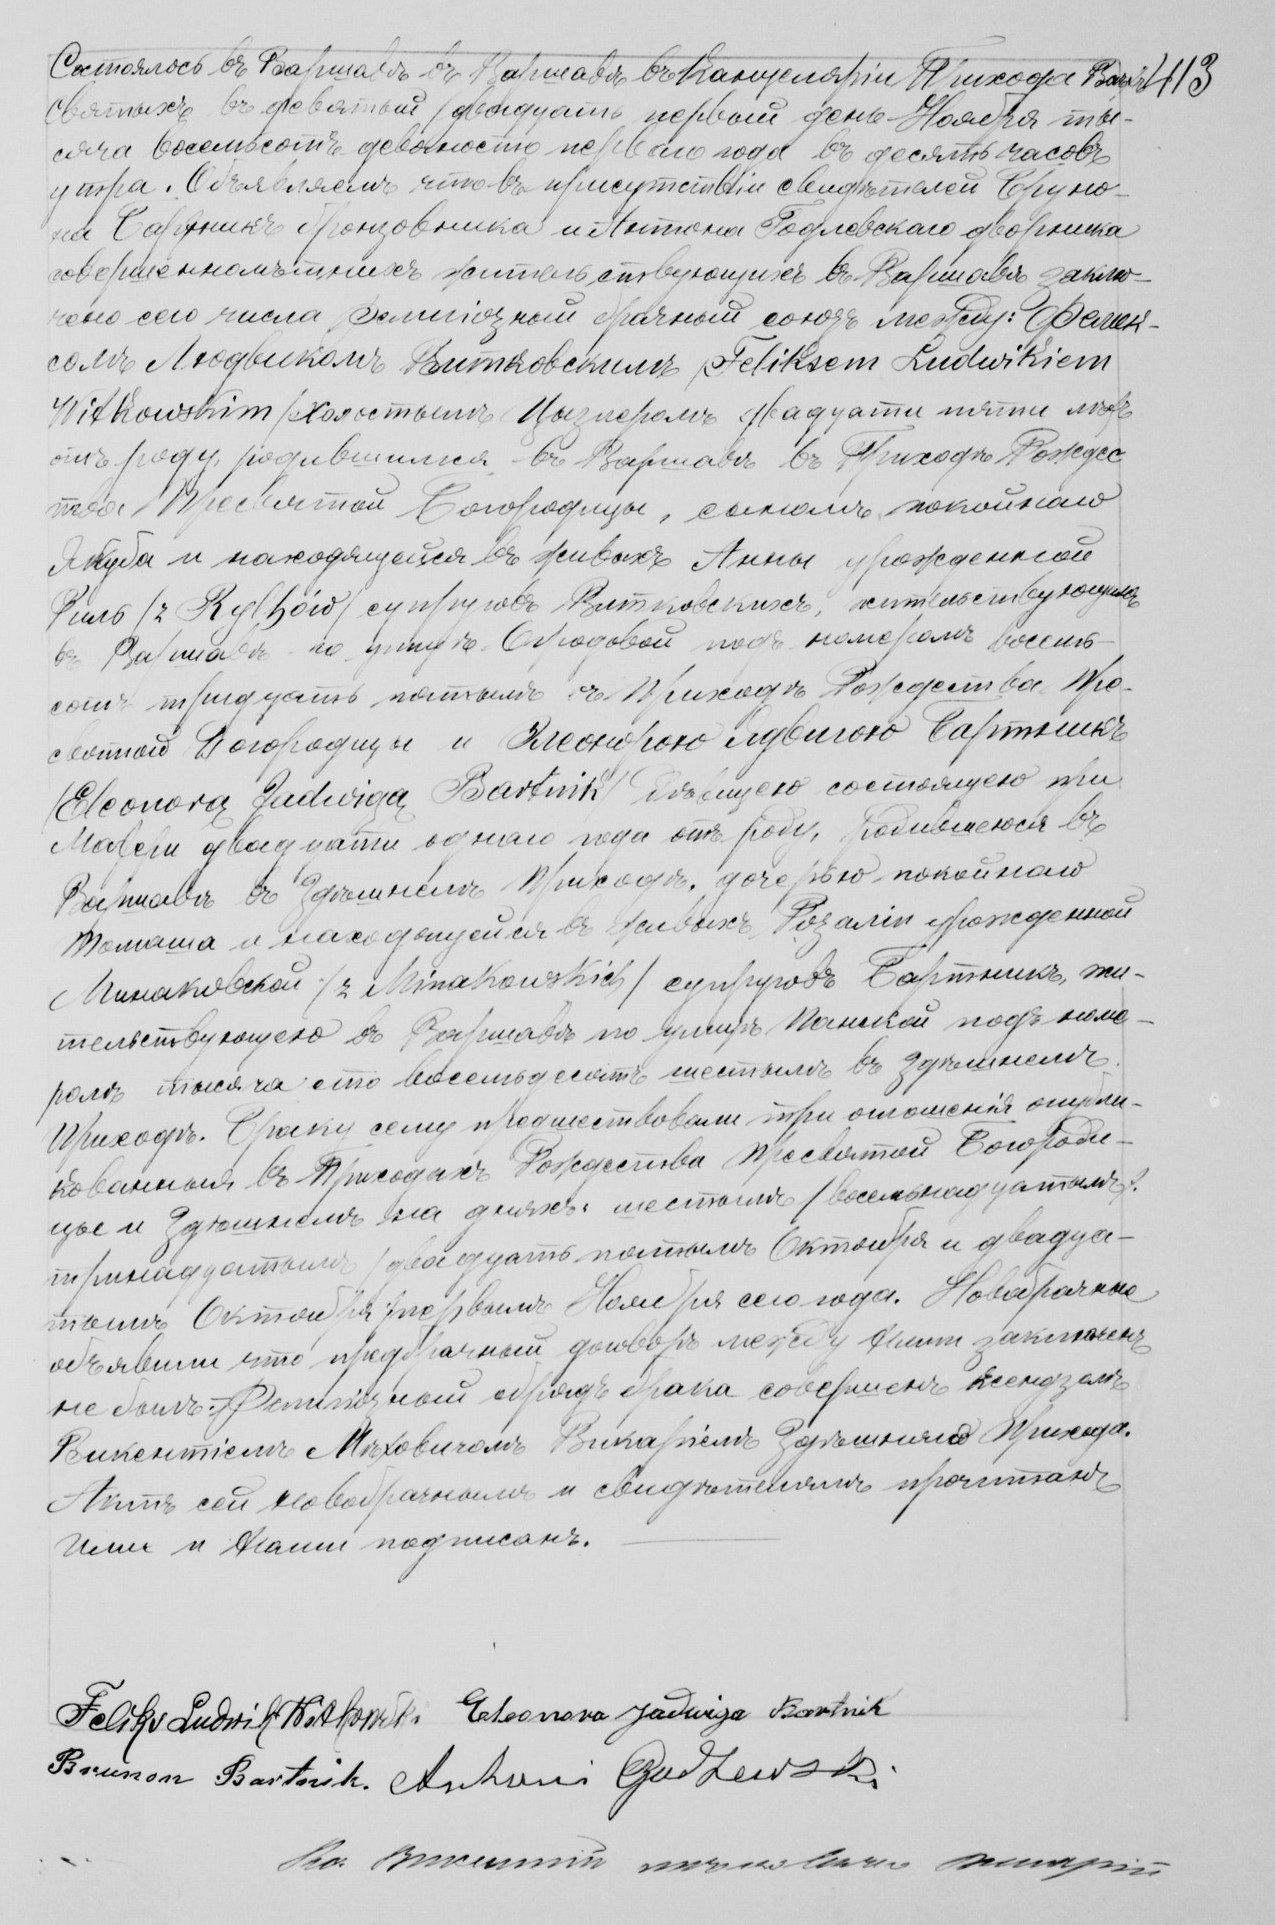 Состоялось въ Варшавѣ въ Варшавѣ въ Канцеляріи Прихода 413
Святыхъ въ девятый /двадцать первый день Ноября ты-
сяча восемьсотъ девяносто перваго года въ десять часовъ
утра. Объявляемъ что въ присутствіи свидѣтелей Бруно-
на Бартникъ бронзовника и Антона Годлевскаго дворника
совершеннолѣтнихъ жительствующихъ въ Варшавѣ заклю-
чено сего числа религіозный брачный союзъ между: Фелик-
сомъ Людвикомъ Витковскимъ /Feliksem Ludwikiem
Witkowskim/ холостымъ Цызлеромъ двадцати пяти лѣтъ
отъ роду, родившимся въ Варшавѣ въ Приходѣ Рождес
тва Пресвятой Богородицы, сыномъ покойнаго
Якуба и находящейся въ живыхъ Анны урожденной
Риль /z Rylhów/ супруговъ Витковскихъ, жительствующимъ
въ Варшавѣ по улицѣ Огродовой подъ номеромъ восемь-
сотъ тридцать пятымъ въ Приходѣ Рождества Пре-
святой Богородицы и Элеонорою Ядвигою Бартникъ
/Eleonorą Jadwigą Bartnik/ дѣвицею состоящею при
Матери двадцати одного года отъ роду, родившеюся въ
Варшавѣ въ Здѣшнемъ Приходѣ, дочерью покойнаго
Томаша и находящейся въ живыхъ Розаліи урожденной
Минаковской /z Minakowskich/ супруговъ Бартникъ, жи-
тельствующею въ Варшавѣ по улицѣ Панской подъ номе-
ромъ тысяча сто восемьдесятъ шестымъ въ Здѣшнемъ
Приходѣ. Браку сему предшествовали три оглашенія опубли-
кованныя въ Приходахъ Рождества Пресвятой Богороди-
цы и Здѣшнемъ на дняхъ: шестымъ /восемьнадцатымъ/.
тринадцатымъ /двадцать пятымъ Октября и двадца-
тымъ Октября /первымъ Ноября сего года. Новобрачные
объявили что предбрачный договоръ между ними заключенъ
не былъ. Религіозный обрядъ брака совершенъ Ксендзомъ
Викентіемъ Мѣховичомъ Викаріемъ Здѣшняго Прихода.
Актъ сей Новобрачнымъ и свидѣтелямъ прочитанъ
Ими и Нами подписанъ.
Feliks Ludwik Witkowski. Eleonora Jadwiga Bartnik
Brunon Bartnik. Antoni Godlewski
Кс. Викентій Викарій